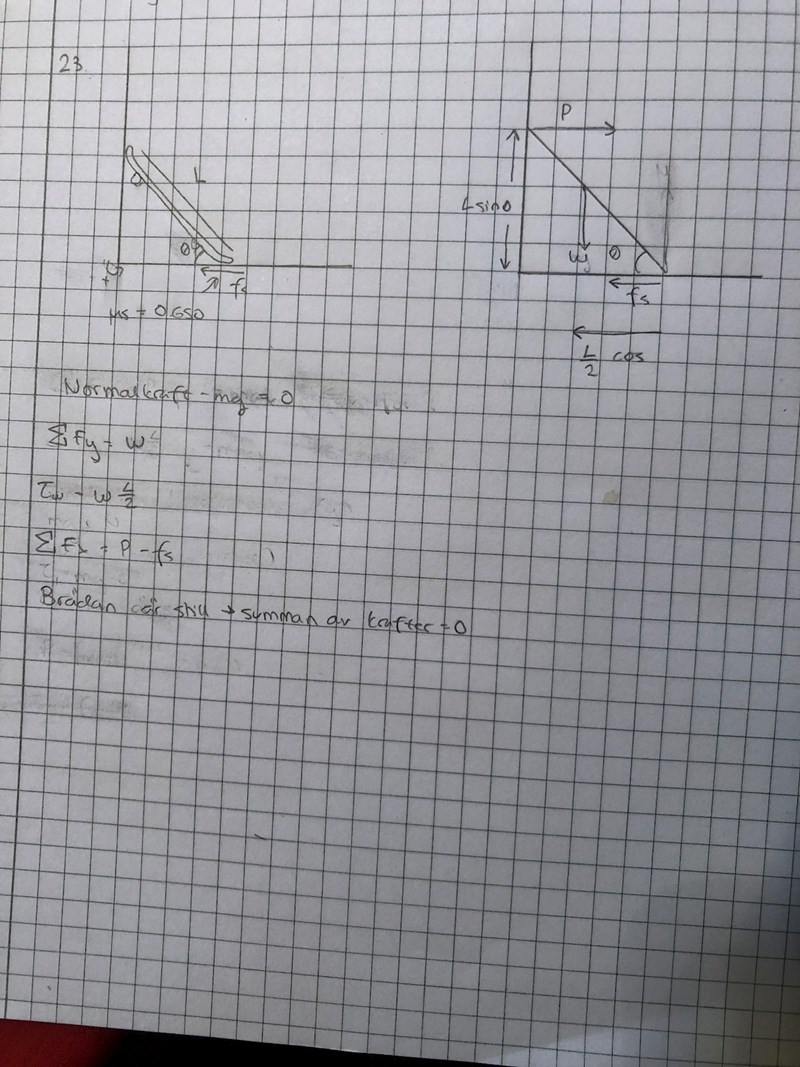 23.
L
θ
fs
μs = 0,650
P
L sinθ
W
θ
fs
L/2 cos
Normalkraft - mg = 0
ΣFy = W
τw = W L/2
ΣFx = P - fs
Brädan är still → summan av krafter = 0